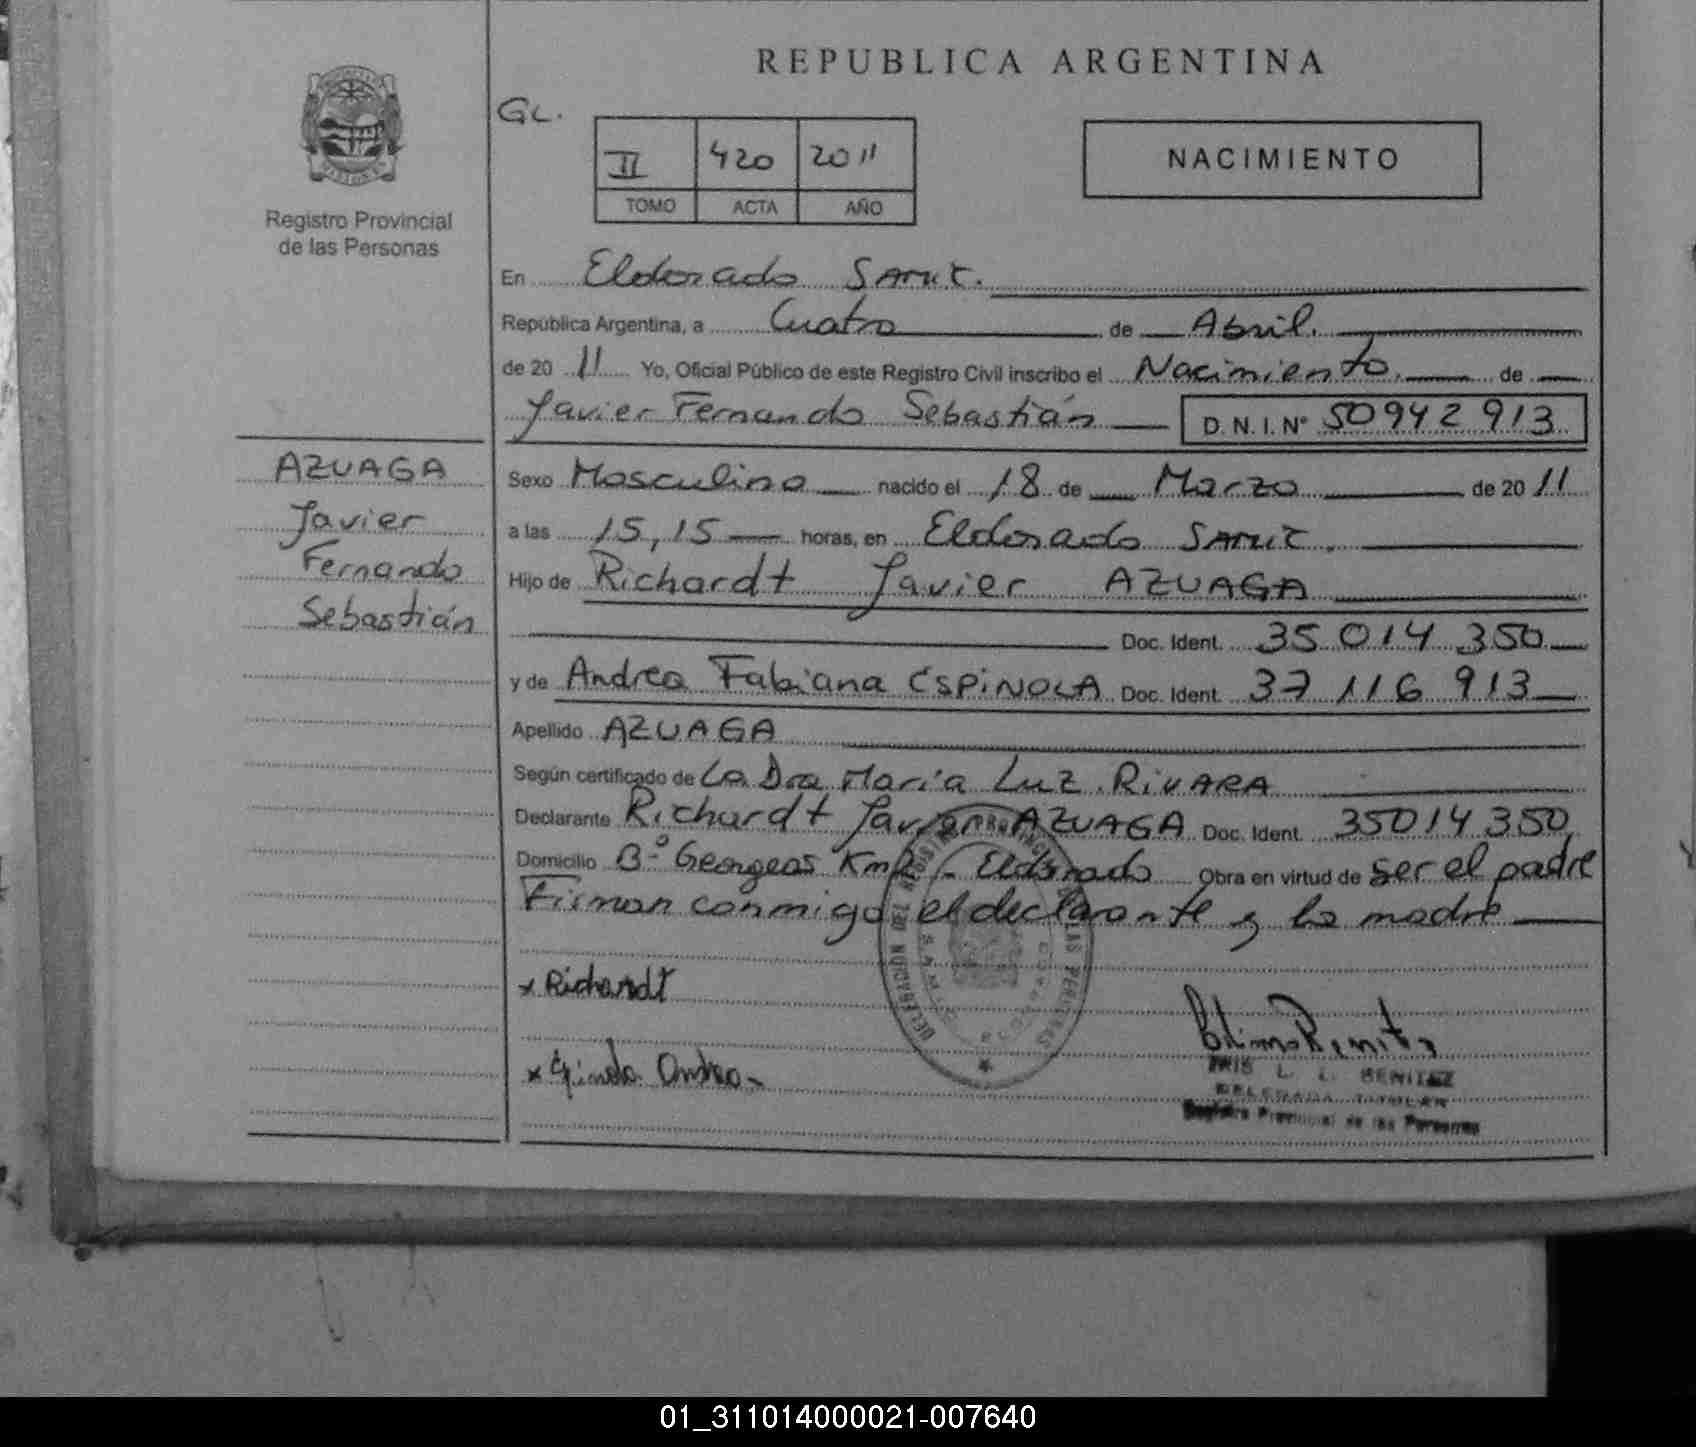 REPUBLICA ARGENTINA
GL.
II 420 2011
TOMO ACTA AÑO
NACIMIENTO
Registro Provincial
de las Personas
En Eldorado
República Argentina, a Cuatro de Abril.
de 20 11 Yo, Oficial Público de este Registro Civil inscribo el Nacimiento. de
Javier Fernando Sebastián D.N.I. N° 50942913
AZUAGA
Javier
Fernando
Sebastián
Sexo Masculino nacido el 18 de Marzo de 20 11
a las 15,15 horas, en Eldorado
Hijo de Richardt Javier AZUAGA
Doc. Ident. 35 014 350
y de Andrea Fabiana ESPINOLA Doc. Ident. 37 116 913
Apellido AZUAGA
Según certificado de La Dra María Luz RIVARA
Declarante Richardt Javier AZUAGA Doc. Ident. 35014350
Domicilio B° Georgeas Km2 - Eldorado Obra en virtud de ser el padre
Firman conmigo el declarante y la madre
x Richardt
DELEGACIÓN DEL REGISTRO PROVINCIAL DE LAS PERSONAS
x Andrea
IRIS L. L. BENITEZ
DELEGADA TITULAR
Registro Provincial de las Personas
01_311014000021-007640